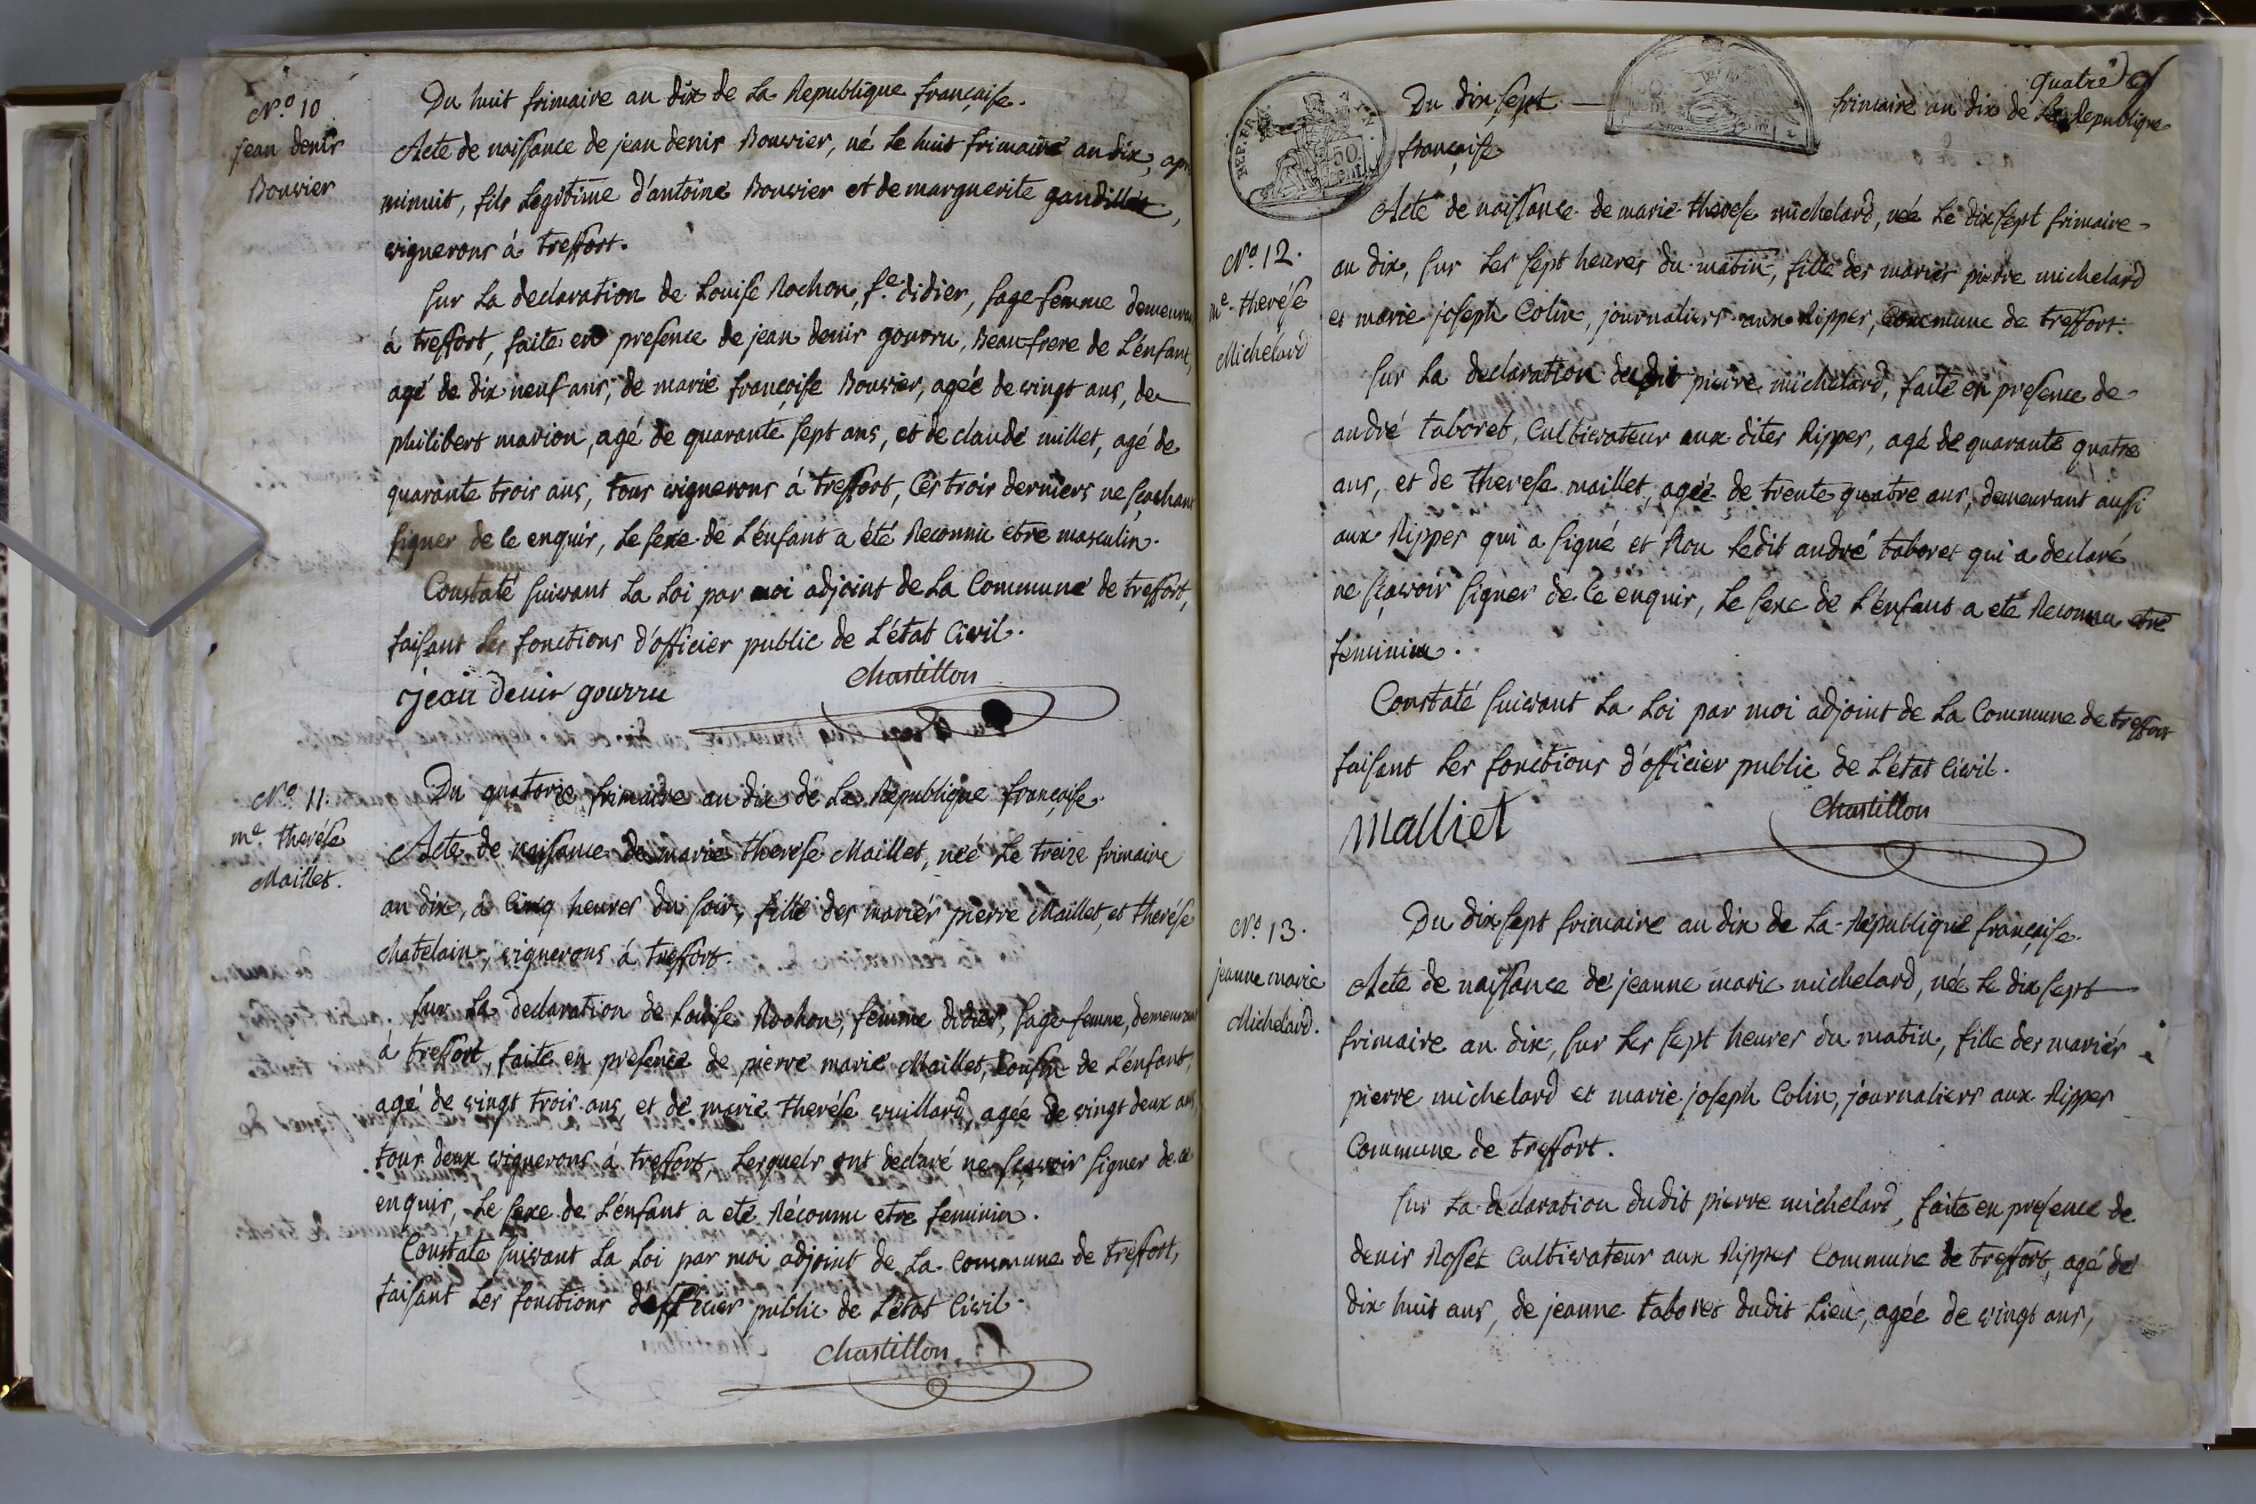 N.o 10
jean denis
Bouvier
Du huit frimaire an dix de La Republique française.
Acte de naissance de jean denis Bouvier, né Le huit frimaire an dix, apr
minuit, fils Legitime d'antoine Bouvier et de marguerite gaudillet,
vignerons á treffort.
sur La declaration de Louise Rochon, f.e didier, sage-femme demeuran
á treffort, faite en presence de jean denis gourru, Beau-frere de L'enfant,
agé de dix neuf ans, de marie françoise Bouvier, agée de vingt ans, de
philibert marion, agé de quarante sept ans, et de claude millet, agé de
quarante trois ans, tous vignerons á treffort, Ces trois derniers ne sçachant
signer de ce enquis, Le sexe de L'enfant a été Reconnu etre masculin.
Constaté suivant La Loi par moi adjoint de La Commune de treffort,
faisant Les fonctions d'officier public de L'état Civil.
jean denis gourru
Chastillon
N.o 11.
m.e therése
Maillet.
Du quatorze frimaire an dix de La Republique française.
Acte de naissance de marie therese Maillet, née Le treize frimaire
an dix, á Cinq heures du soir, fille des mariés pierre Maillet, et therése
chatelain, vignerons á treffort.
sur La declaration de Louise Rochon, femme didier, sage-femme, demeurant
á treffort, faite en presence de pierre marie Maillet, Cousin de L'enfant,
agé de vingt trois ans, et de marie therése vuillard, agée de vingt deux ans
tous deux vignerons á treffort, Lesquels ont declaré ne sçavoir signer de ce
enquis, Le sexe de L'enfant a eté Réconnu etre feminin.
Constaté suivant La Loi par moi adjoint de La Commune de treffort,
faisant Les fonctions d'officier public de L'état Civil.
Chastillon
quatre
REP. FRA
50
CENT.
Du dix sept — frimaire an dix de La Republique
française
N.o 12.
m.e therése
Michelard
Acte de naissance de marie therese michelard, née Le dix sept frimaire
an dix, sur Les sept heures du matin, fille des mariés pierre michelard
et marie joseph Colin, journaliers aux Rippes, Commune de treffort.
sur La declaration dudit pierre michelard, faite en presence de
andré taboret, Cultivateur aux dites Rippes, agé de quarante quatre
ans, et de therese maillet, agée de trente quatre ans, demeurant aussi
aux Rippes qui a signé et Non Ledit andré taboret qui a declaré
ne sçavoir signer de Ce enquis, Le sexe de L'enfant a eté Reconnu etre
feminin.
Constaté suivant La Loi par moi adjoint de La Commune de treffort
faisant Les fonctions d'officier public de L'état Civil.
Malliet
Chastillon
N.o 13.
jeanne marie
Michelard.
Du dix sept frimaire an dix de La Republique française.
Acte de naissance de jeanne marie michelard, née Le dix sept
frimaire an dix, sur Les sept heures du matin, fille des mariés
pierre michelard et marie joseph Colin, journaliers aux Rippes
Commune de treffort.
sur La declaration dudit pierre michelard, faite en presence de
denis Rosset Cultivateur aux Rippes Commune de treffort, agé de
dix huit ans, de jeanne taboret dudit Lieu, agée de vingt ans,